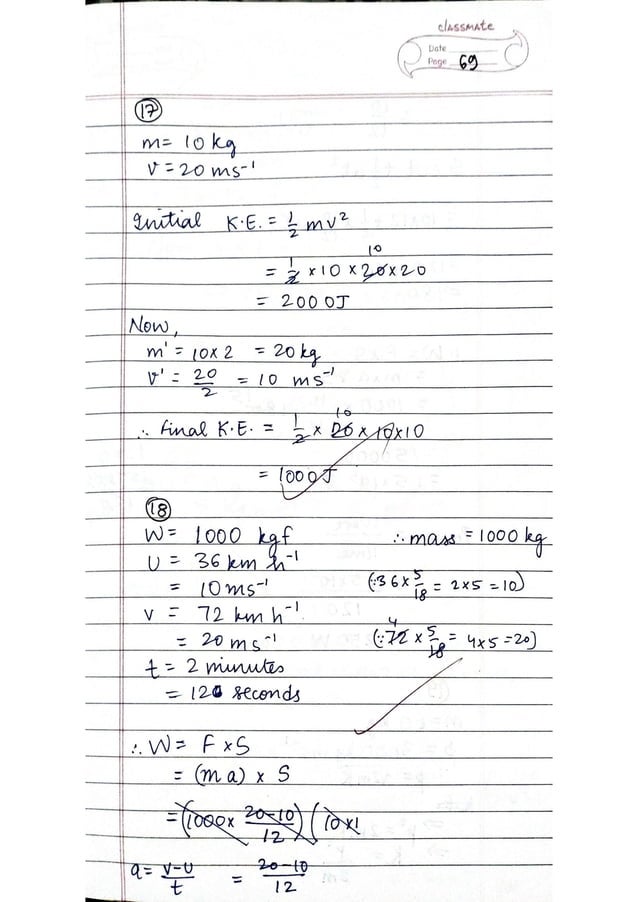 classmate
Date
Page 69
17
m = 10 kg
v = 20 ms⁻¹
Initial K.E. = 1/2 mv²
= 1/2 × 10 × 20 × 20
10
= 2000J
Now,
m' = 10 × 2 = 20 kg
v' = 20/2 = 10 ms⁻¹
∴ Final K.E. = 1/2 × 20 × 10 × 10
10
= 1000J
18
W = 1000 kgf ∴ mass = 1000 kg
U = 36 km h⁻¹
= 10 ms⁻¹ (∵ 36 × 5/18 = 2 × 5 = 10)
v = 72 km h⁻¹
= 20 ms⁻¹ (∵ 72 × 5/18 = 4 × 5 = 20)
4
t = 2 minutes
= 120 seconds
∴ W = F × S
= (ma) × S
= (1000 × 20-10/12) (10 × 1
a = v-u/t = 20-10/12